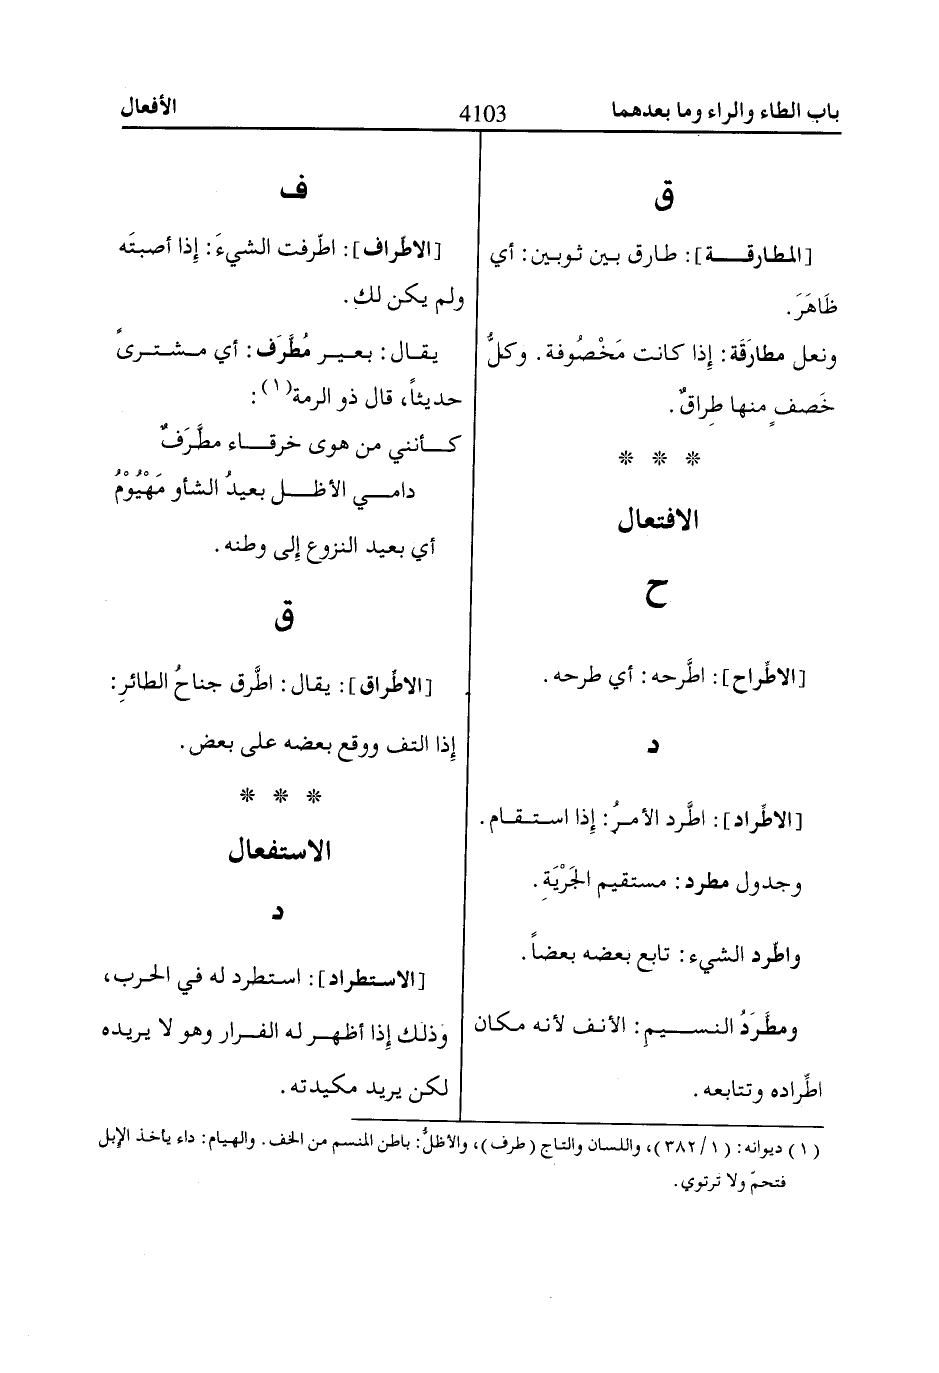 باب الطاء والراء وما بعدهما
4103
الأفعال
ق
[المطارقة]: طارق بين ثوبين: أي
ظَاهَرَ.
ونعل مطارَقَة: إذا كانت مَخْصُوفة. وكلُّ
خَصفٍ منها طِراقٌ.
* * *
الافتعال
ح
[الاطِّراح]: اطَّرحه: أي طرحه.
د
[الاطِّراد]: اطَّرد الأمرُ: إذا استقام.
وجدول مطرد: مستقيم الجَرْيَةِ.
واطّرد الشيء: تابع بعضه بعضاً.
ومطَّرَدُ النسيمِ: الأنف لأنه مكان
اطِّراده وتتابعه.
ف
[الاطّراف]: اطّرفت الشيءَ: إذا أصبتَه
ولم يكن لك.
يقال: بعير مُطَّرَف: أي مشترىً
حديثاً، قال ذو الرمة(١):
كأنني من هوى خرقاء مطَّرَفٌ
دامي الأظل بعيدُ الشأو مَهْيُوْمُ
أي بعيد النزوع إلى وطنه.
ق
[الاطّراق]: يقال: اطَّرق جناحُ الطائرِ:
إذا التف ووقع بعضه على بعض.
* * *
الاستفعال
د
[الاستطراد]: استطرد له في الحرب،
وذلك إذا أظهر له الفرار وهو لا يريده
لكن يريد مكيدته.
(١) ديوانه: (١/ ٣٨٢)، واللسان والتاج (طرف)، والأظلُّ: باطن المنسم من الخف. والهيام: داء يأخذ الإبل
فتحمّ ولا ترتوي.